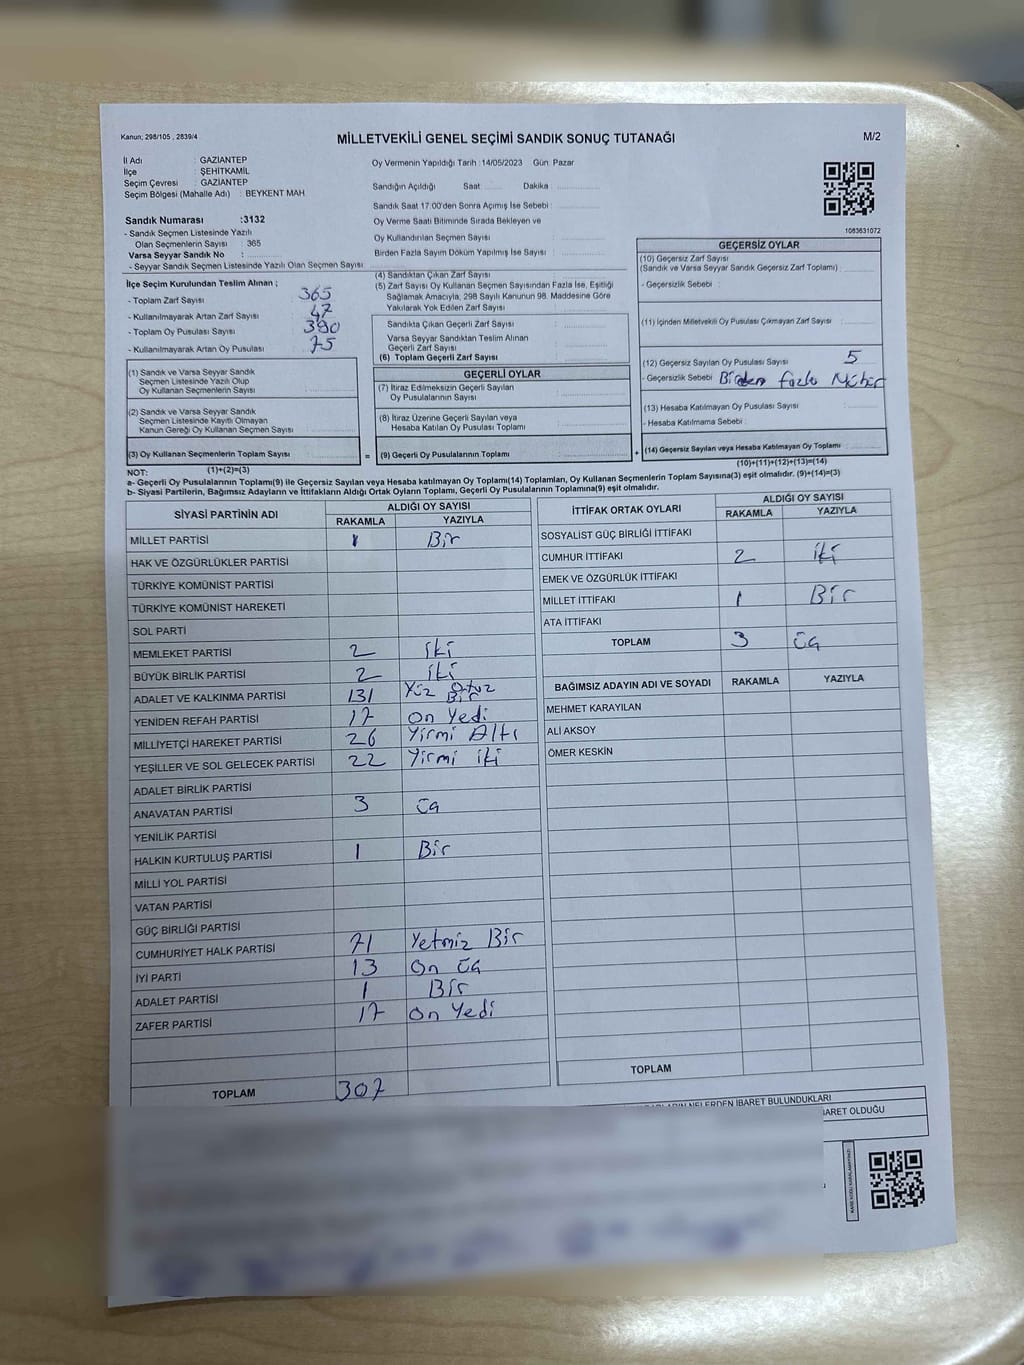 Kanun; 298/105 , 2839/4
MİLLETVEKİLİ GENEL SEÇİMİ SANDIK SONUÇ TUTANAĞI
M/2
İl Adı : GAZİANTEP
İlçe : ŞEHİTKAMİL
Seçim Çevresi : GAZİANTEP
Seçim Bölgesi (Mahalle Adı) : BEYKENT MAH
Oy Vermenin Yapıldığı Tarih :14/05/2023 Gün: Pazar
Sandığın Açıldığı Saat Dakika :
Sandık Saat 17:00'den Sonra Açımış İse Sebebi :
Oy Verme Saati Bitiminde Sırada Bekleyen ve
Oy Kullandırılan Seçmen Sayısı :
Birden Fazla Sayım Döküm Yapılmış İse Sayısı :
1083631072
Sandık Numarası :3132
- Sandık Seçmen Listesinde Yazılı
Olan Seçmenlerin Sayısı : 365
Varsa Seyyar Sandık No :
- Seyyar Sandık Seçmen Listesinde Yazılı Olan Seçmen Sayısı:
İlçe Seçim Kurulundan Teslim Alınan ;
- Toplam Zarf Sayısı : 365
- Kullanılmayarak Artan Zarf Sayısı : 47
- Toplam Oy Pusulası Sayısı : 390
- Kullanılmayarak Artan Oy Pusulası : 75
(1) Sandık ve Varsa Seyyar Sandık
Seçmen Listesinde Yazılı Olup
Oy Kullanan Seçmenlerin Sayısı :
(2) Sandık ve Varsa Seyyar Sandık
Seçmen Listesinde Kayıtlı Olmayan
Kanun Gereği Oy Kullanan Seçmen Sayısı :
(3) Oy Kullanan Seçmenlerin Toplam Sayısı :
(4) Sandıktan Çıkan Zarf Sayısı :
(5) Zarf Sayısı Oy Kullanan Seçmen Sayısından Fazla İse, Eşitliği
Sağlamak Amacıyla, 298 Sayılı Kanunun 98. Maddesine Göre
Yakılarak Yok Edilen Zarf Sayısı :
Sandıkta Çıkan Geçerli Zarf Sayısı :
Varsa Seyyar Sandıktan Teslim Alınan
Geçerli Zarf Sayısı :
(6) Toplam Geçerli Zarf Sayısı :
GEÇERLİ OYLAR
(7) İtiraz Edilmeksizin Geçerli Sayılan
Oy Pusulalarının Sayısı :
(8) İtiraz Üzerine Geçerli Sayılan veya
Hesaba Katılan Oy Pusulası Toplamı :
= (9) Geçerli Oy Pusulalarının Toplamı :
GEÇERSİZ OYLAR
(10) Geçersiz Zarf Sayısı
(Sandık ve Varsa Seyyar Sandık Geçersiz Zarf Toplamı) :
- Geçersizlik Sebebi :
(11) İçinden Milletvekili Oy Pusulası Çıkmayan Zarf Sayısı :
(12) Geçersiz Sayılan Oy Pusulası Sayısı : 5
- Geçersizlik Sebebi : Birden fazla Mühür
(13) Hesaba Katılmayan Oy Pusulası Sayısı :
- Hesaba Katılmama Sebebi :
+ (14) Geçersiz Sayılan veya Hesaba Katılmayan Oy Toplamı :
NOT: (1)+(2)=(3)
(10)+(11)+(12)+(13)=(14)
a- Geçerli Oy Pusulalarının Toplamı(9) ile Geçersiz Sayılan veya Hesaba katılmayan Oy Toplamı(14) Toplamları, Oy Kullanan Seçmenlerin Toplam Sayısına(3) eşit olmalıdır. (9)+(14)=(3)
b- Siyasi Partilerin, Bağımsız Adayların ve İttifakların Aldığı Ortak Oyların Toplamı, Geçerli Oy Pusulalarının Toplamına(9) eşit olmalıdır.
SİYASİ PARTİNİN ADI ALDIĞI OY SAYISI
RAKAMLA YAZIYLA
MİLLET PARTİSİ 1 Bir
HAK VE ÖZGÜRLÜKLER PARTİSİ
TÜRKİYE KOMÜNİST PARTİSİ
TÜRKİYE KOMÜNİST HAREKETİ
SOL PARTİ
MEMLEKET PARTİSİ 2 iki
BÜYÜK BİRLİK PARTİSİ 2 iki
ADALET VE KALKINMA PARTİSİ 131 Yüz Otuz Bir
YENİDEN REFAH PARTİSİ 17 On Yedi
MİLLİYETÇİ HAREKET PARTİSİ 26 Yirmi Altı
YEŞİLLER VE SOL GELECEK PARTİSİ 22 Yirmi iki
ADALET BİRLİK PARTİSİ
ANAVATAN PARTİSİ 3 üç
YENİLİK PARTİSİ
HALKIN KURTULUŞ PARTİSİ 1 Bir
MİLLİ YOL PARTİSİ
VATAN PARTİSİ
GÜÇ BİRLİĞİ PARTİSİ
CUMHURİYET HALK PARTİSİ 71 Yetmiz Bir
İYİ PARTİ 13 On üç
ADALET PARTİSİ 1 Bir
ZAFER PARTİSİ 17 On Yedi
TOPLAM 307
İTTİFAK ORTAK OYLARI ALDIĞI OY SAYISI
RAKAMLA YAZIYLA
SOSYALİST GÜÇ BİRLİĞİ İTTİFAKI
CUMHUR İTTİFAKI 2 iki
EMEK VE ÖZGÜRLÜK İTTİFAKI
MİLLET İTTİFAKI 1 Bir
ATA İTTİFAKI
TOPLAM 3 üç
BAĞIMSIZ ADAYIN ADI VE SOYADI RAKAMLA YAZIYLA
MEHMET KARAYILAN
ALİ AKSOY
ÖMER KESKİN
TOPLAM
NELERDEN İBARET BULUNDUKLARI
İBARET OLDUĞU